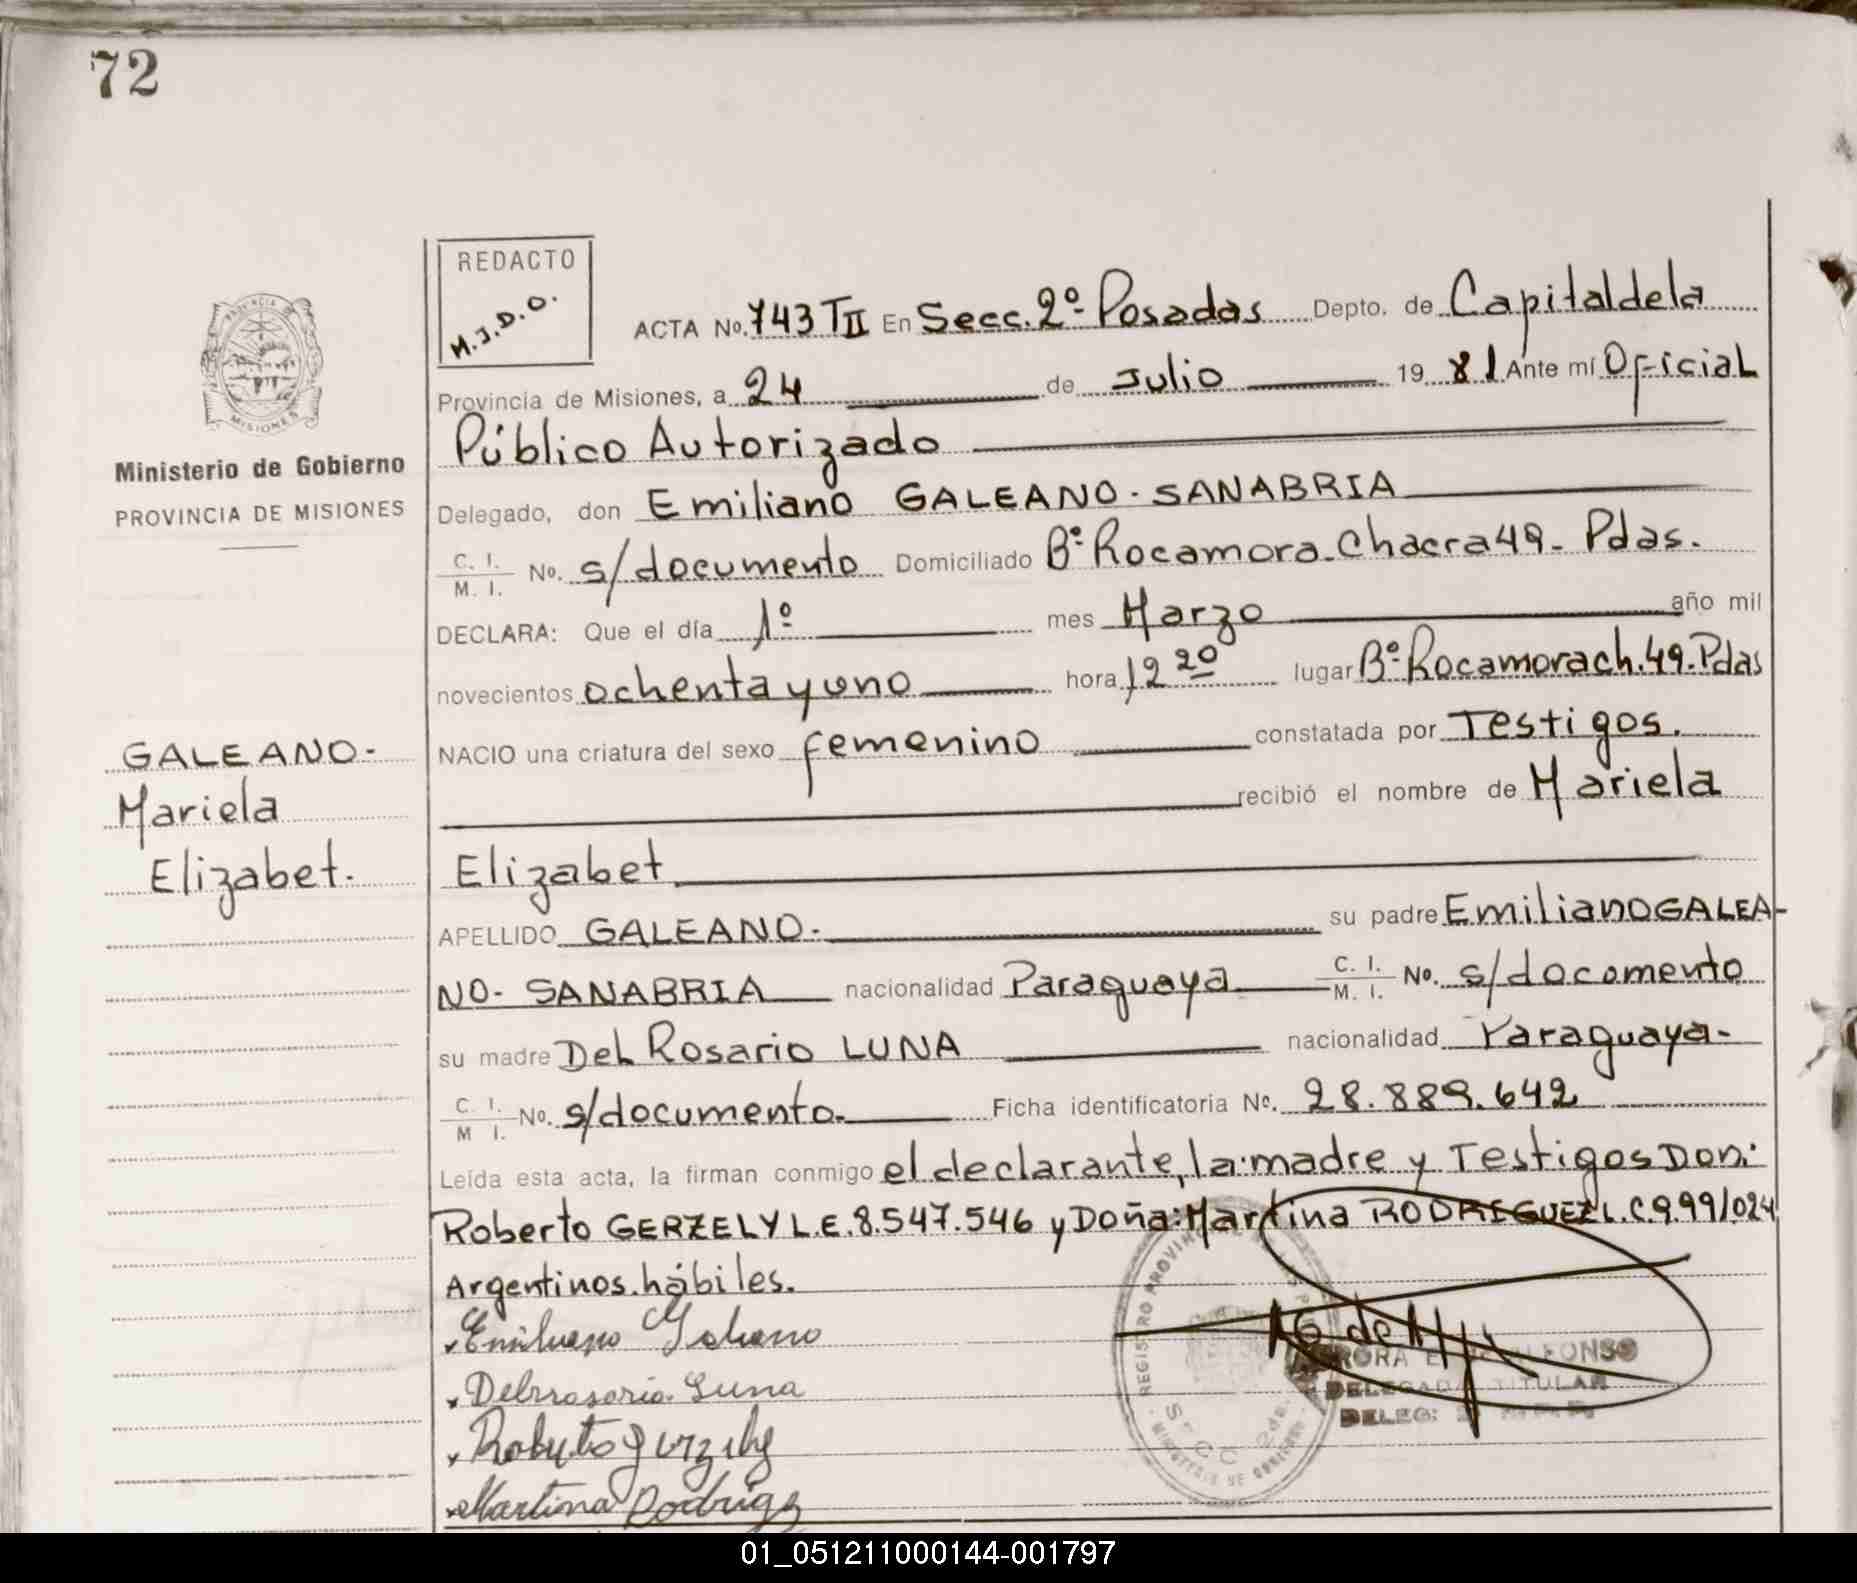 72
REDACTO
M.J.D.O.
ACTA No. 743 TII En Secc. 2º Posadas Depto. de Capital de la
Provincia de Misiones, a 24 de Julio 1981 Ante mí Oficial
Público Autorizado
Ministerio de Gobierno
PROVINCIA DE MISIONES
Delegado, don Emiliano GALEANO - SANABRIA
C. I. M. I. No. s/documento Domiciliado Bº Rocamora - Chacra 49 - Pdas.
DECLARA: Que el día 1º mes Marzo año mil
novecientos ochenta y uno hora 12 20 lugar Bº Rocamora ch. 49 - Pdas
GALEANO -
Mariela
Elizabet.
NACIO una criatura del sexo femenino constatada por Testigos.
recibió el nombre de Mariela
Elizabet
APELLIDO GALEANO. su padre Emiliano GALEA-
NO - SANABRIA nacionalidad Paraguaya C. I. M. I. No. s/documento
su madre Del Rosario LUNA nacionalidad Paraguaya -
C. I. M. I. No. s/documento. Ficha identificatoria No. 28.889.642
Leída esta acta, la firman conmigo el declarante, la madre y Testigos Don:
Roberto GERZELY L.E. 8.547.546 y Doña: Martina RODRIGUEZ L.C. 9.991024
Argentinos hábiles.
Emiliano Galeano
Delrrosario Luna
Roberto Gerzely
Martina Rodrigz
REGISTRO PROVINCIAL
SECC 2da.
MINISTERIO DE GOBIERNO
DELEGADA TITULAR
01_051211000144-001797